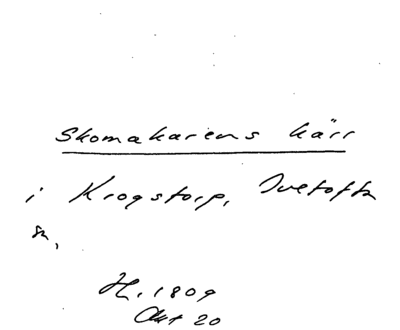 Skomakarens kärr
i Krogstorp, Ivetofta
sn,
H. 1809
Akt 20